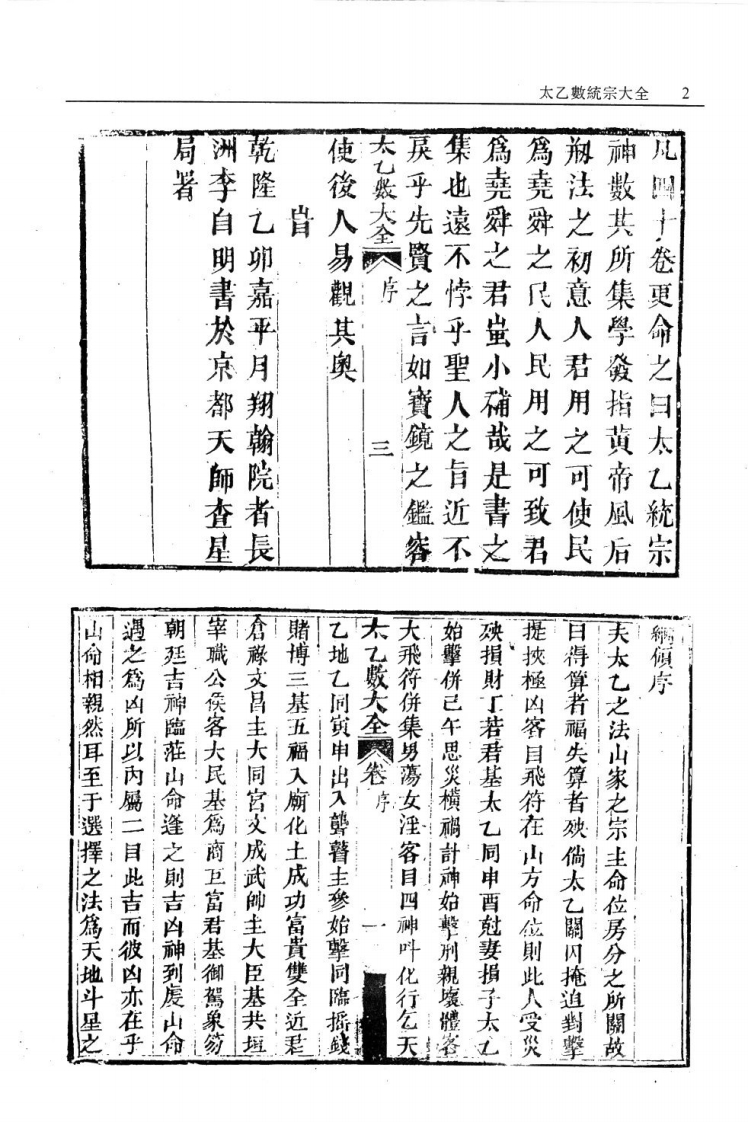 太乙數統宗大全 2
凡四十卷更命之曰太乙統宗
神數其所集學發指黃帝風后
刱法之初意人君用之可使民
爲堯舜之民人民用之可致君
爲堯舜之君豈小補哉是書之
集也遠不悖乎聖人之旨近不
戾乎先賢之言如寶鏡之鑑容
太乙數大全 序 三
使後人易觀其奧
旹
乾隆乙卯嘉平月翔翰院者長
洲李自明書於京都天師查星
局署
序
夫太乙之法山家之宗主命位房分之所關故
曰得算者福失算者殃倘太乙關囚掩迫對擊
提挾極凶客目飛符在山方命位則此人受災
殃損財丁若君基太乙同申酉尅妻損子太乙
始擊併巳午思災橫禍計神始擊刑親壞體客
大飛符併集男蕩女淫客目四神叫化行乞天
太乙數大全 卷 序 一
乙地乙同寅申出入聾瞽主參始擊同臨搖錢
賭博三基五福入廟化土成功富貴雙全近君
倉祿文昌主大同宮文成武帥主大臣基共垣
宰職公侯客大民基爲商巨富君基御駕象笏
朝廷吉神臨莅山命逢之則吉凶神到度山命
遇之爲凶所以內屬二目此吉而彼凶亦在乎
山命相親然耳至于選擇之法爲天地斗星之